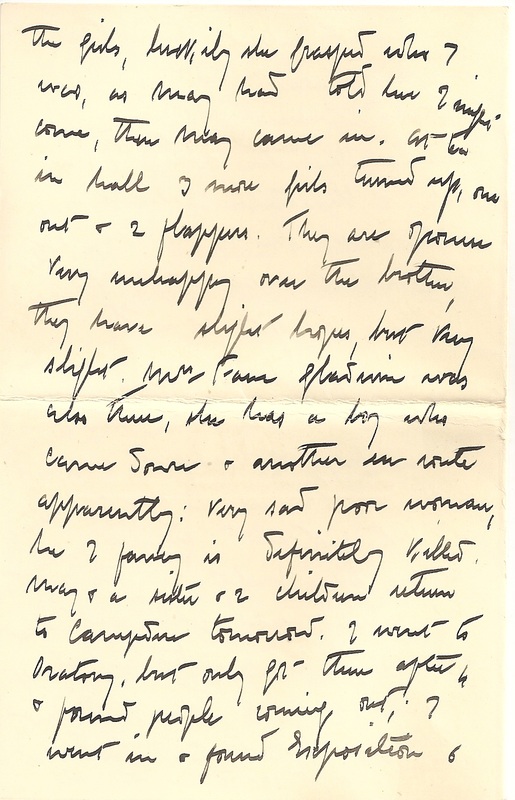 the girls, luckily she grasped who I
was, as May had told her I might
come, then May came in. At tea
in hall 3 more girls turned up, one
out & 2 flappers. They are of course
very unhappy over the brother,
they have slight hopes, but very
slight. Mrs Gladwin was
also there, she has a boy who
came down & another en route
apparently: very sad poor woman,
he I fancy is definitely killed.
May & a sister & 2 children return
to Campden tomorrow. I went to
Oratory, but only got there after 4
& found people coming out; I
went in & found Exposition &